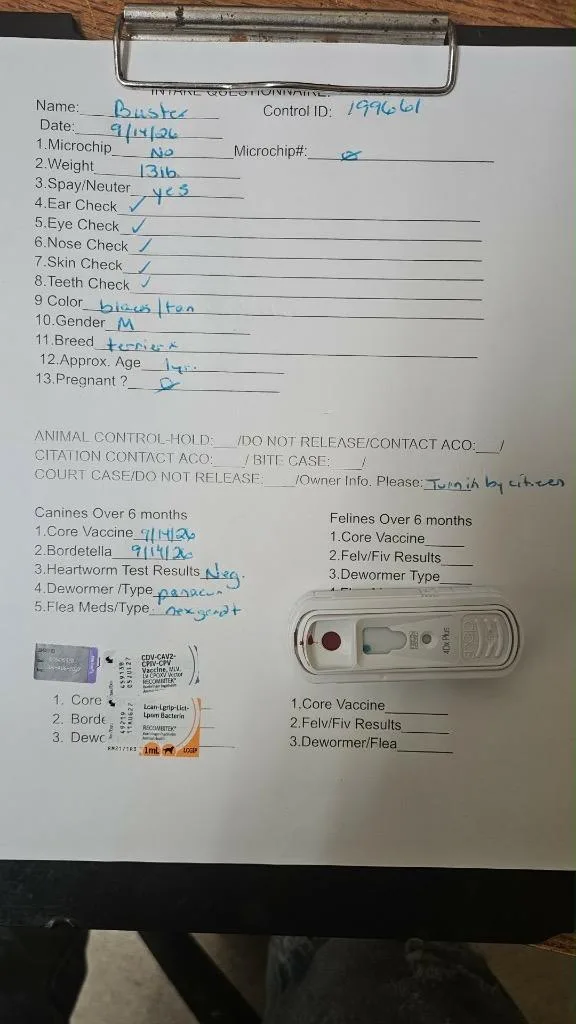 INTAKE QUESTIONNAIRE:
Name: Buster Control ID: 199661
Date: 9/14/26
1.Microchip No Microchip#: ø
2.Weight 13lb
3.Spay/Neuter yes
4.Ear Check ✓
5.Eye Check ✓
6.Nose Check ✓
7.Skin Check ✓
8.Teeth Check ✓
9 Color black/tan
10.Gender M
11.Breed terrier x
12.Approx. Age 1yr.
13.Pregnant ? ø
ANIMAL CONTROL-HOLD:___/DO NOT RELEASE/CONTACT ACO:___/
CITATION CONTACT ACO:___/ BITE CASE:___/
COURT CASE/DO NOT RELEASE:___/Owner Info. Please: Turn in by citizen
Canines Over 6 months
1.Core Vaccine 9/14/26
2.Bordetella 9/14/26
3.Heartworm Test Results Neg.
4.Dewormer /Type panacur
5.Flea Meds/Type: nexgardt
Felines Over 6 months
1.Core Vaccine
2.Felv/Fiv Results
3.Dewormer Type
4Dx Plus
CDV-CAV2-
CPIV-CPV
Vaccine, MLV,
LV CPOXV Vector
RECOMBITEK®
65913B
05JUL27
Lcan-Lgrip-Lict-
Lpom Bacterin
RECOMBITEK®
49219
11AUG27
1mL
1. Core
2. Borde
3. Dewo
1.Core Vaccine
2.Felv/Fiv Results
3.Dewormer/Flea